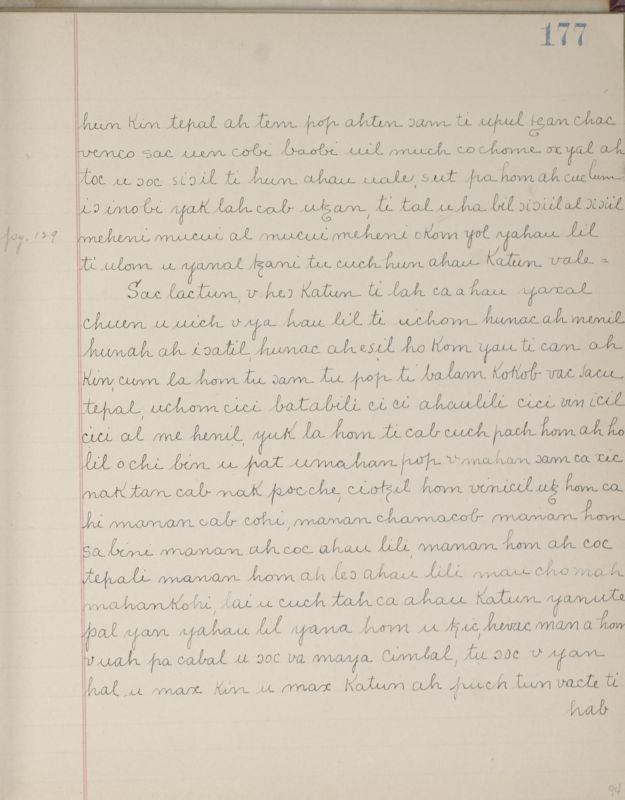 177
hun Kin tepal ah tem pop ahten ɔam ti upul ꜩan chac
venco sac uen cobi baobi uil much cochome ox yal ah
toc u ɔoc siɔil ti hun ahau uale, sut pa hom ah cuc lum
iɔ inobi yak lah cab uꜩan, ti tal u ha bil ɔiɔiil al ɔiɔiil
pag. 129
meheni mucui al mucui meheni oKom yol yahau lil
ti ulom u yanal ꜩani tu cuch hun ahau Katun vale =
Sac lactun, v heɔ Katun ti lah ca ahau yaxal
chuen u uich v ya hau lil ti uchom hunac ah menil
hunah ah iɔatil, hunac ah esil ho Kom yau ti can ah
Kin, cum la hom tu ɔam tu pop ti balam Kokob vac sacu
tepal, uchom cici batabili ci ci ahaulili cici vin icil
cici al me henil, yuk la hom ti cab cuch pach hom ah ho
lil ochi bin u pat umahan pop v mahan ɔam ca xic
nak tan cab nak pocche, cioꜩil hom vinicil uꜩ hom ca
hi manan cab cohi, manan chamacob manan hom
sabini manan ah coc ahau lili, manan hom ah coc
tepali manan hom ah leɔ ahau lili mau chomah
mahanKohi, lai u cuch tah ca ahau Katun yanute
pal yan yahau lil yana hom u ꜩic, hevac man a hom
v uah pa cabal u ɔoc va maya cimbal, tu ɔoc v yan
hal u max Kin u max Katun ah puch tun vacte ti
hab
94